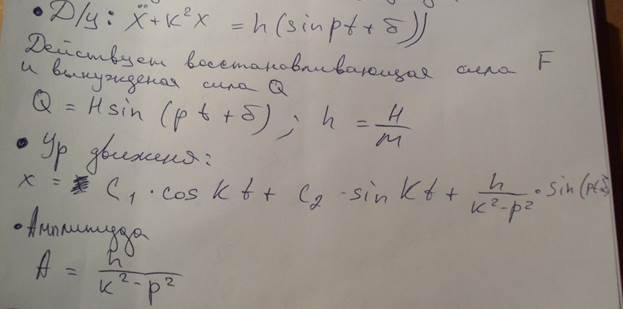 • Д/у: ẍ + k²x = h(sin pt + δ))
Действует восстанавливающая сила F
и вынужденая сила Q
Q = H sin (pt + δ); h = H/m
• Ур движеня:
x = C₁·cos kt + C₂·sin kt + h/(k²-p²)·sin(pt+δ)
• Амплитуда
A = h/(k²-p²)